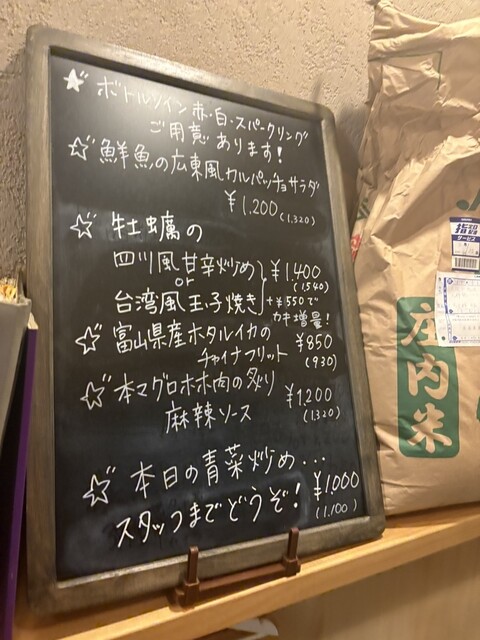 ★ ボトルワイン 赤・白・スパークリング
ご用意 あります!
☆ 鮮魚の広東風カルパッチョサラダ
¥1.200 (1.320)
☆ 牡蠣の
四川風 甘辛炒め
or
台湾風 玉子焼き
¥1.400
(1.540)
+¥550で
カキ増量!
☆ 富山県産ホタルイカの
チャイナフリット
¥850
(930)
☆ 本マグロホホ肉の炙り
麻辣ソース
¥1.200
(1.320)
☆ 本日の青菜炒め...
スタッフまでどうぞ!
¥1.000
(1.100)
指定
サービス
庄内米